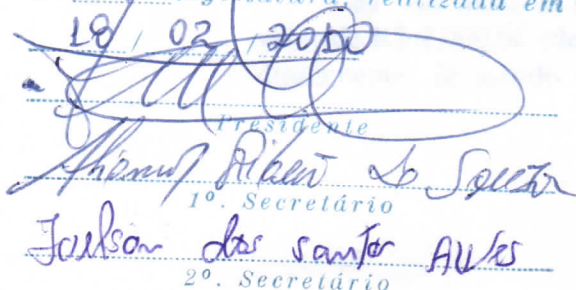 realizada em
18 / 02 / 2010
Presidente
Ribeiro do Souza
1º. Secretário
Joelson dos santos Alves
2º. Secretário